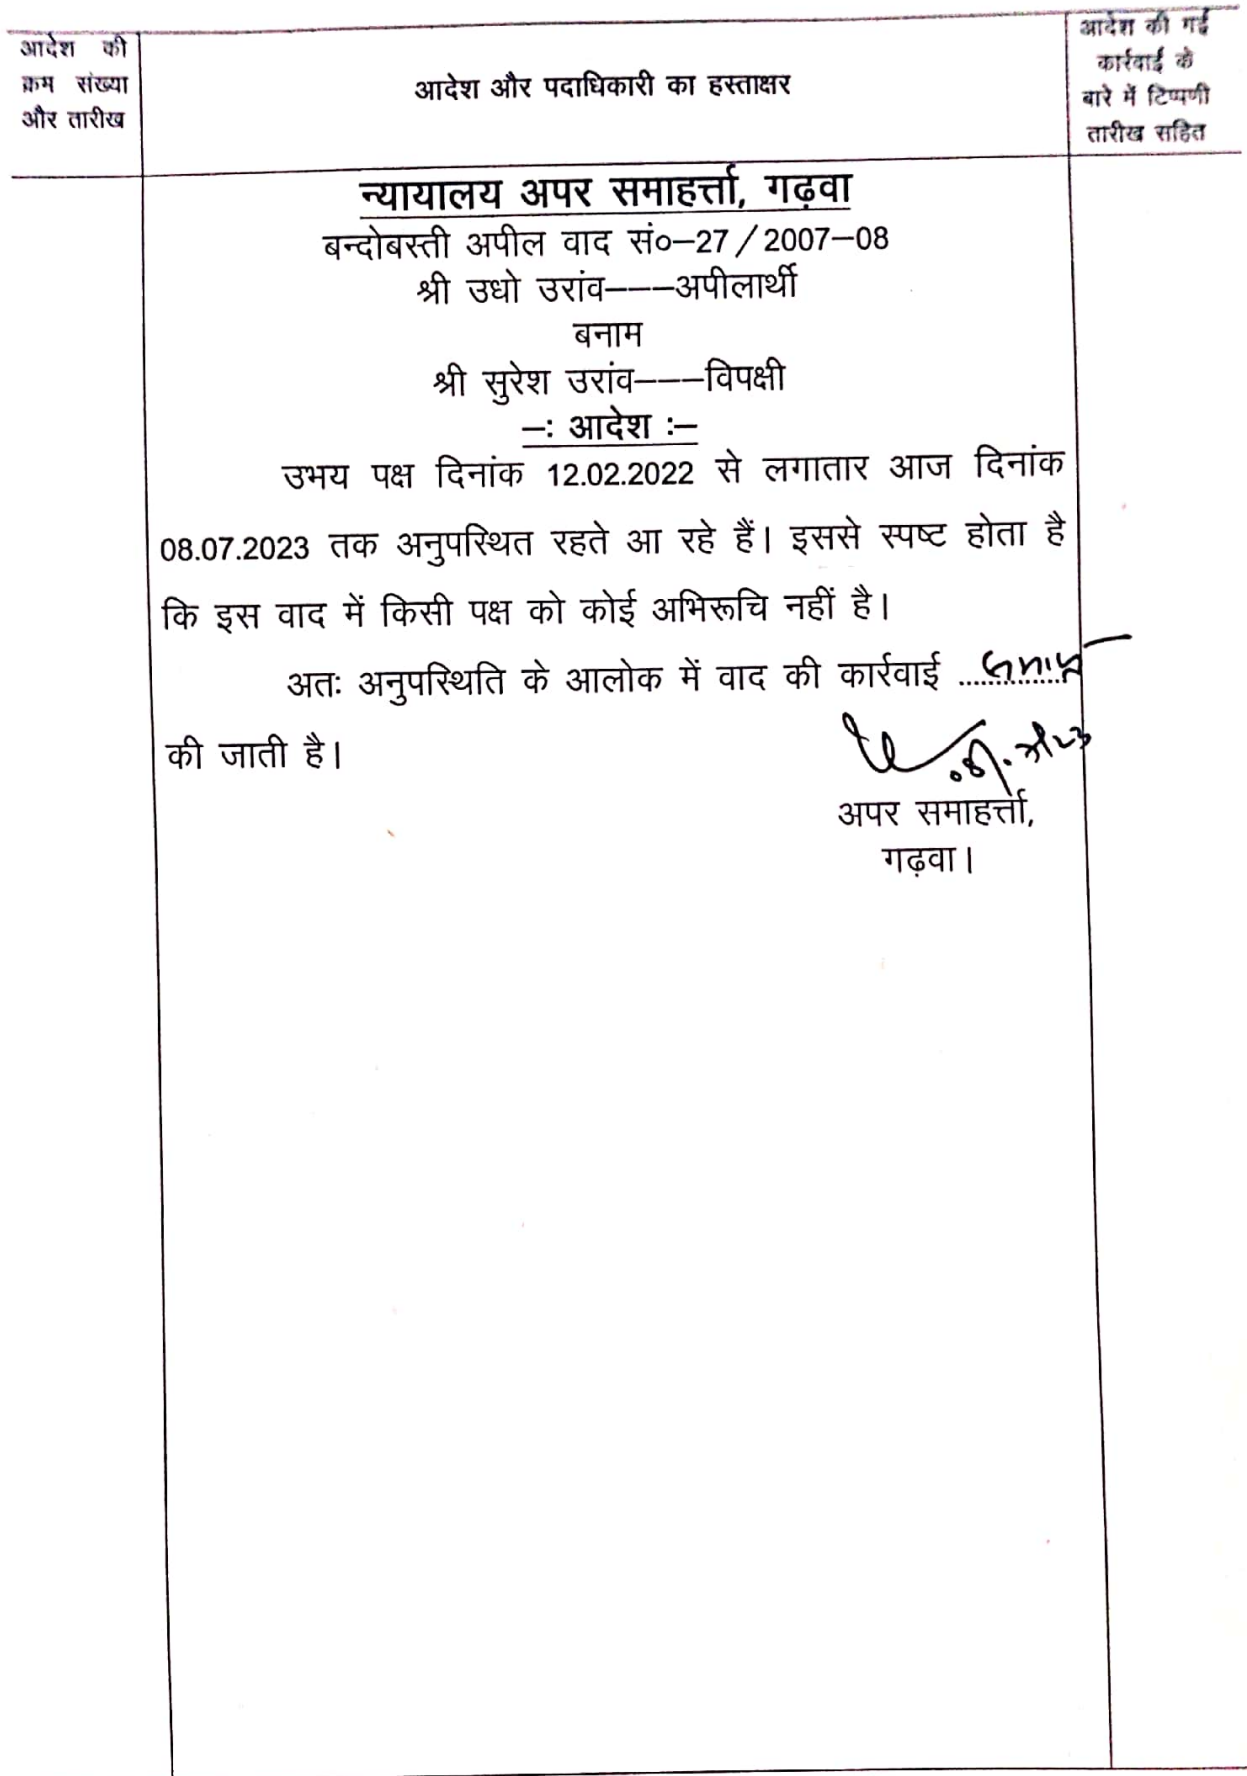 आदेश की
क्रम संख्या
और तारीख
आदेश और पदाधिकारी का हस्ताक्षर
आदेश की गई
कार्रवाई के
बारे में टिप्पणी
तारीख सहित
न्यायालय अपर समाहर्त्ता, गढ़वा
बन्दोबस्ती अपील वाद सं०–27/2007–08
श्री उधो उरांव–––अपीलार्थी
बनाम
श्री सुरेश उरांव–––विपक्षी
–: आदेश :–
उभय पक्ष दिनांक 12.02.2022 से लगातार आज दिनांक
08.07.2023 तक अनुपस्थित रहते आ रहे हैं। इससे स्पष्ट होता है
कि इस वाद में किसी पक्ष को कोई अभिरूचि नहीं है।
अतः अनुपस्थिति के आलोक में वाद की कार्रवाई समाप्त
की जाती है।
अपर समाहर्त्ता,
गढ़वा।